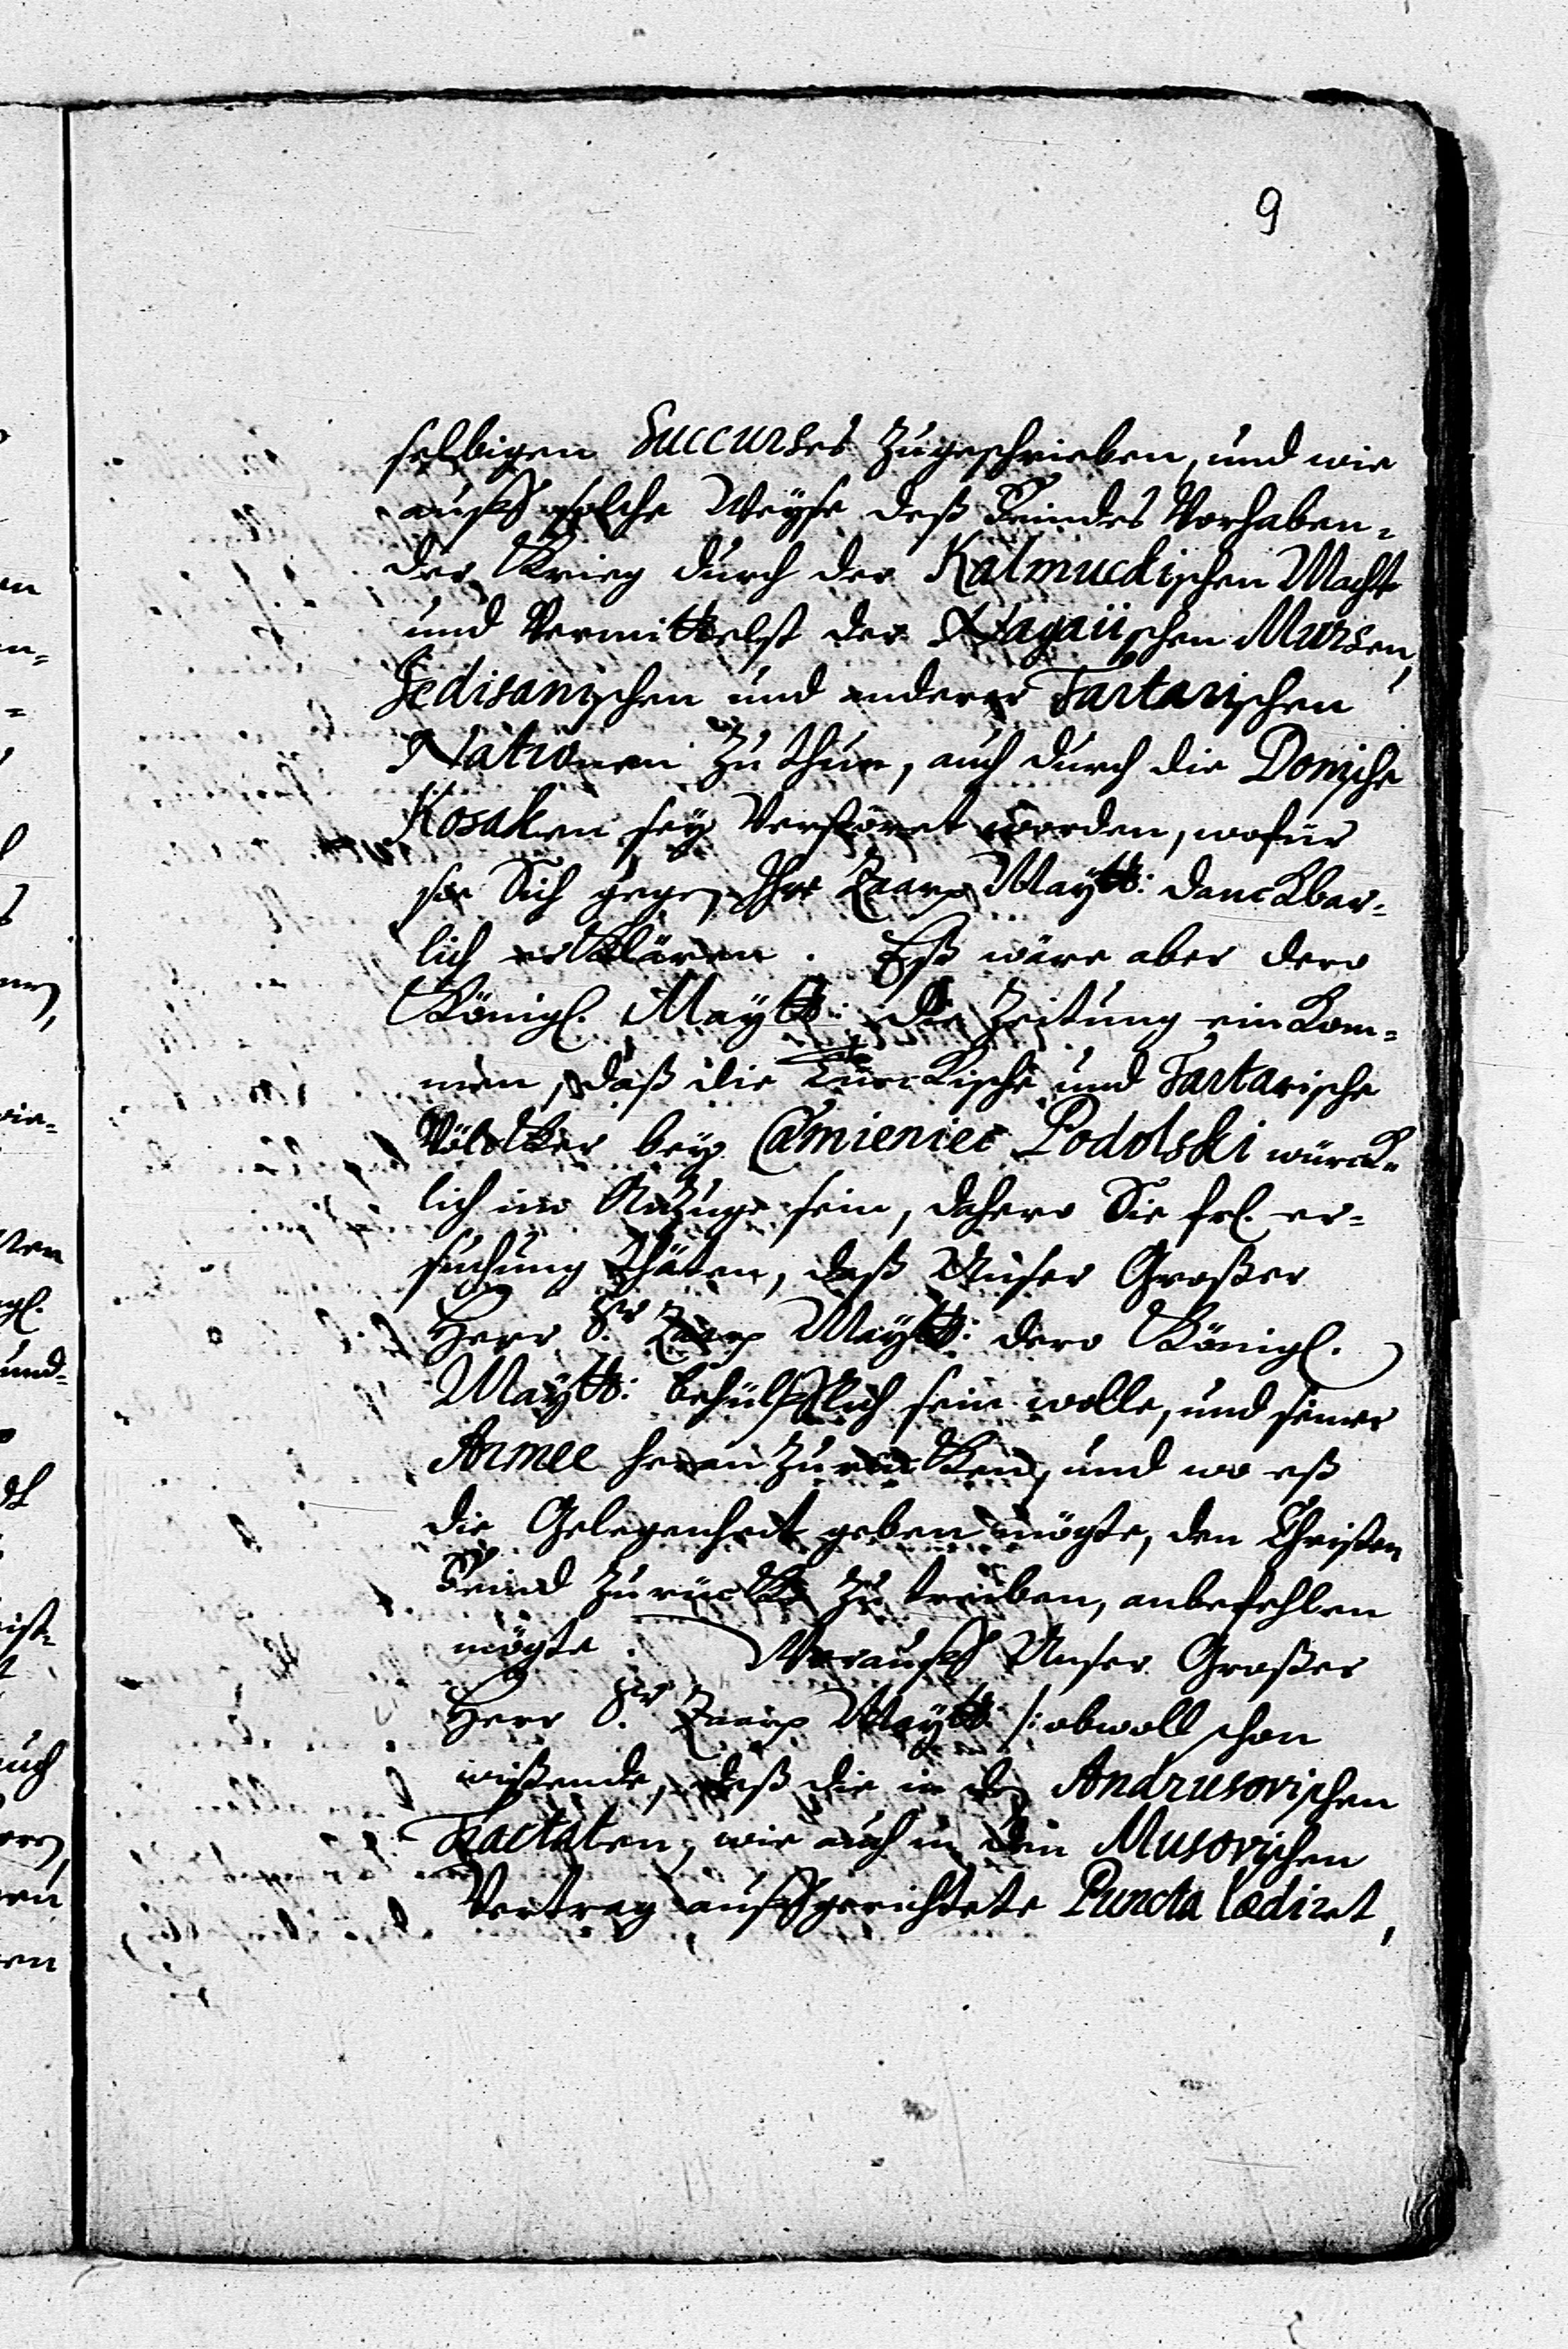 9
selbigen Succurses zugeschrieben, und wie
auff solche Weyse deß Feindes Vorhaben=
der Krieg durch der Kalmucdischen Macht
und Vermittelst der Nagaiischen Mursen,
Jedisanischen und anderer Tartarischen
Nationen zu thun, auch durch die Donische
Kosaken sey Verstöret worden, wofür
sie Sich gegen Ihr Zaar. Maytt: danckbar=
lich erklären. Eß wäre aber dero
Königl. Maytt: die Zeitung einkom=
men, daß die Türckische und Tartarische
Völcker bey Camieniec Podolski würck=
lich im Anzuge sein, dahero Sie frl. er=
suchung thäten, daß Unser Großer
Herr Sr. Zaar. Maytt: dero Königl.
Maytt: behülfflich sein wolle, und seiner
Armee heran zu rücken, und wo eß
die Gelegenheit geben mögte, den Christen
Feind zurück zu treiben, anbefehlen
mögte. Worauff Unser Großer
Herr Sr. Zaar. Maytt: /: obwoll schon
wißende, daß die in den Andrusovischen
Tractaten, wie auch in dem Musovischen
Vertrag auffgerichtete Puncta lædiret,